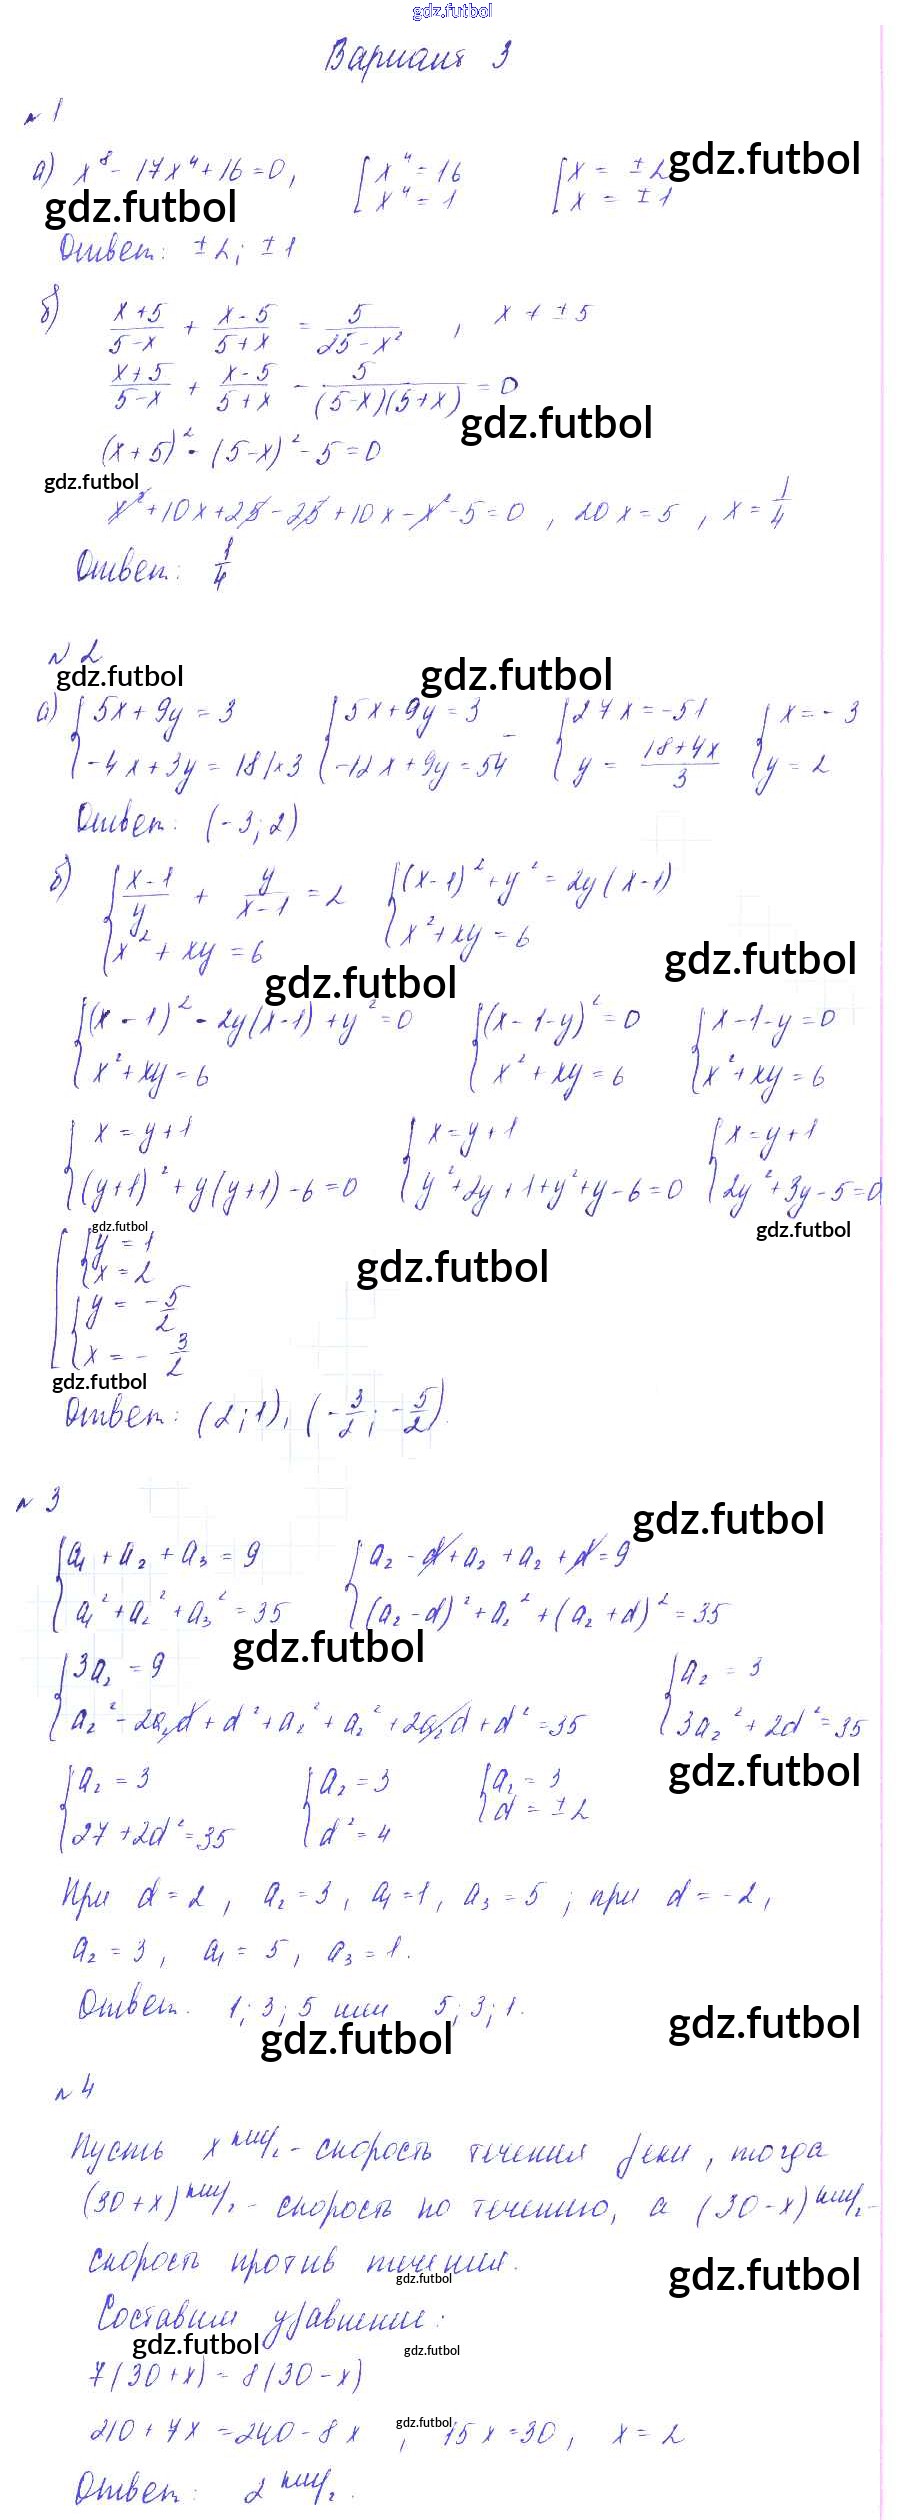 gdz.futbol
Вариант 3
№ 1
а) x⁸ - 17x⁴ + 16 = 0, [x⁴ = 16 [x = ± 2 gdz.futbol
x⁴ = 1 x = ± 1
gdz.futbol
Ответ: ± 2; ± 1
б) (x+5)/(5-x) + (x-5)/(5+x) = 5/(25-x²), x ≠ ± 5
(x+5)/(5-x) + (x-5)/(5+x) - 5/((5-x)(5+x)) = 0
gdz.futbol
(x+5)² - (5-x)² - 5 = 0
gdz.futbol
x² + 10x + 25 - 25 + 10x - x² - 5 = 0, 20x = 5, x = 1/4
Ответ: 1/4
№ 2
gdz.futbol gdz.futbol
а) {5x + 9y = 3 {5x + 9y = 3 {27x = -51 {x = -3
-4x + 3y = 18 |×3 - -12x + 9y = 54 y = (18+4x)/3 y = 2
Ответ: (-3; 2)
б) {(x-1)/y + y/(x-1) = 2 {(x-1)² + y² = 2y(x-1)
x² + xy = 6 x² + xy = 6
gdz.futbol gdz.futbol
{(x-1)² - 2y(x-1) + y² = 0 {(x-1-y)² = 0 {x-1-y = 0
x² + xy = 6 x² + xy = 6 x² + xy = 6
{x = y+1 {x = y+1 {x = y+1
(y+1)² + y(y+1) - 6 = 0 y² + 2y + 1 + y² + y - 6 = 0 2y² + 3y - 5 = 0
gdz.futbol gdz.futbol
[{y = 1
x = 2 gdz.futbol
{y = -5/2
x = -3/2
gdz.futbol
Ответ: (2; 1), (-3/2; -5/2).
№ 3
gdz.futbol
{a₁ + a₂ + a₃ = 9 {a₂ - d + a₂ + a₂ + d = 9
a₁² + a₂² + a₃² = 35 (a₂-d)² + a₂² + (a₂+d)² = 35
gdz.futbol
{3a₂ = 9 {a₂ = 3
a₂² - 2a₂d + d² + a₂² + a₂² + 2a₂d + d² = 35 3a₂² + 2d² = 35
gdz.futbol
{a₂ = 3 {a₂ = 3 {a₂ = 3
27 + 2d² = 35 d² = 4 d = ± 2
При d = 2, a₂ = 3, a₁ = 1, a₃ = 5; при d = -2,
a₂ = 3, a₁ = 5, a₃ = 1.
Ответ. 1; 3; 5 или 5; 3; 1.
gdz.futbol gdz.futbol
№ 4
Пусть x км/ч - скорость течения реки, тогда
(30+x) км/ч - скорость по течению, а (30-x) км/ч -
скорость против течения.
gdz.futbol gdz.futbol
Составим уравнение:
gdz.futbol gdz.futbol
7(30+x) = 8(30-x)
gdz.futbol
210 + 7x = 240 - 8x, 15x = 30, x = 2
Ответ: 2 км/ч.